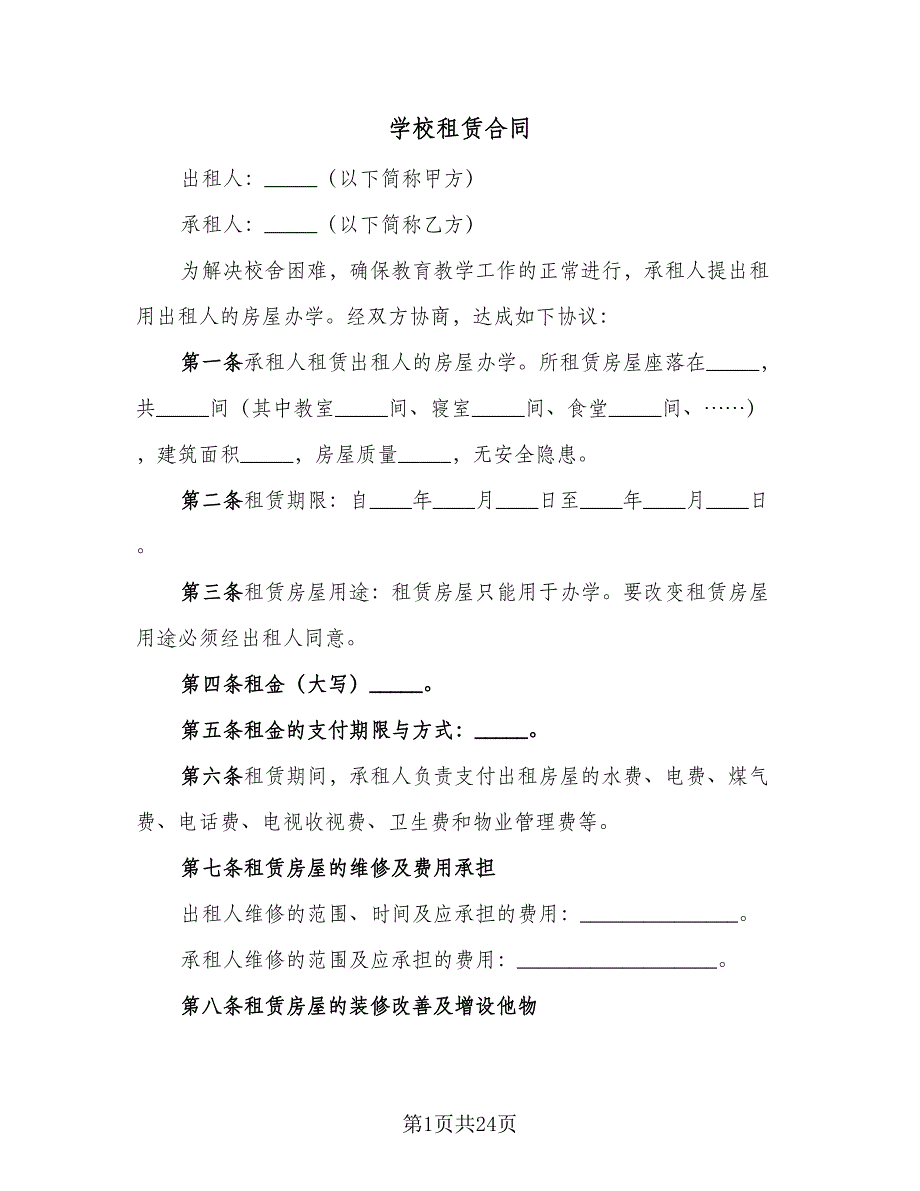 学校租赁合同
出租人：_____（以下简称甲方）
承租人：_____（以下简称乙方）
为解决校舍困难，确保教育教学工作的正常进行，承租人提出租
用出租人的房屋办学。经双方协商，达成如下协议：
第一条承租人租赁出租人的房屋办学。所租赁房屋座落在_____，
共_____间（其中教室_____间、寝室_____间、食堂_____间、……）
，建筑面积_____，房屋质量_____，无安全隐患。
第二条租赁期限：自____年____月____日至____年____月____日
。
第三条租赁房屋用途：租赁房屋只能用于办学。要改变租赁房屋
用途必须经出租人同意。
第四条租金（大写）_____。
第五条租金的支付期限与方式：_____。
第六条租赁期间，承租人负责支付出租房屋的水费、电费、煤气
费、电话费、电视收视费、卫生费和物业管理费等。
第七条租赁房屋的维修及费用承担
出租人维修的范围、时间及应承担的费用：_______________。
承租人维修的范围及应承担的费用：___________________。
第八条租赁房屋的装修改善及增设他物
第1页共24页